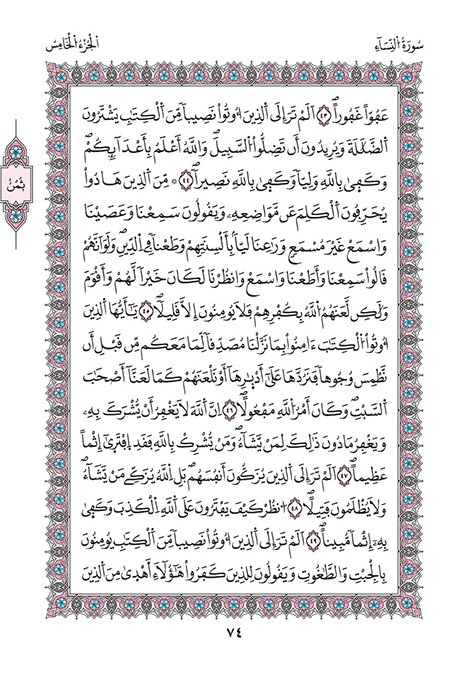 سُورَةُ اُ۬لنِّسَآءِ
اَ۬لْجُزْءُ اُ۬لْخَامِسُ
عَفُوّاً غَفُوراًۖ ﴿٤٣﴾ اَلَمْ تَرَ إِلَى اَ۬لذِينَ أُوتُواْ نَصِيباٗ مِّنَ اَ۬لْكِتَٰبِ يَشْتَرُونَ
اَ۬لضَّلَٰلَةَ وَيُرِيدُونَ أَن تَضِلُّواْ اُ۬لسَّبِيلَۖ وَاللَّهُ أَعْلَمُ بِأَعْدَآئِكُمْۖ
وَكَف۪يٰ بِاللَّهِ وَلِيّاٗ وَكَف۪يٰ بِاللَّهِ نَصِيراٗۖ ﴿٤٤﴾ مِّنَ اَ۬لذِينَ هَادُواْ
يُحَرِّفُونَ اَ۬لْكَلِمَ عَن مَّوَاضِعِهِۦ وَيَقُولُونَ سَمِعْنَا وَعَصَيْنَا
وَاسْمَعْ غَيْرَ مُسْمَعٖ وَرَٰعِنَا لَيّاَۢ بِأَلْسِنَتِهِمْ وَطَعْناٗ فِے اِ۬لدِّينِۖ وَلَوَ اَنَّهُمْ
قَالُواْ سَمِعْنَا وَأَطَعْنَا وَاسْمَعْ وَانظُرْنَا لَكَانَ خَيْراٗ لَّهُمْ وَأَقْوَمَ
وَلَٰكِن لَّعَنَهُمُ اُ۬للَّهُ بِكُفْرِهِمْ فَلَا يُومِنُونَ إِلَّا قَلِيلاٗۖ ﴿٤٥﴾ يَٰٓأَيُّهَا اَ۬لذِينَ
أُوتُواْ اُ۬لْكِتَٰبَ ءَامِنُواْ بِمَا نَزَّلْنَا مُصَدِّقاٗ لِّمَا مَعَكُم مِّن قَبْلِ أَن
نَّطْمِسَ وُجُوهاٗ فَنَرُدَّهَا عَلَىٰٓ أَدْبٰ۪رِهَآ أَوْ نَلْعَنَهُمْ كَمَا لَعَنَّآ أَصْحَٰبَ
اَ۬لسَّبْتِۖ وَكَانَ أَمْرُ اُ۬للَّهِ مَفْعُولاًۖ ﴿٤٦﴾ اِنَّ اَ۬للَّهَ لَا يَغْفِرُ أَن يُّشْرَكَ بِهِۦ
وَيَغْفِرُ مَا دُونَ ذَٰلِكَ لِمَن يَّشَآءُۖ وَمَن يُّشْرِكْ بِاللَّهِ فَقَدِ اِ۪فْتَر۪يٰٓ إِثْماً
عَظِيماًۖ ﴿٤٧﴾ اَلَمْ تَرَ إِلَى اَ۬لذِينَ يُزَكُّونَ أَنفُسَهُمۖ بَلِ اِ۬للَّهُ يُزَكِّے مَنْ يَّشَآءُۖ
وَلَا يُظْلَمُونَ فَتِيلاًۖ ﴿٤٨﴾ اُ۟نظُرْ كَيْفَ يَفْتَرُونَ عَلَى اَ۬للَّهِ اِ۬لْكَذِبَۖ وَكَف۪يٰ
بِهِۦٓ إِثْماٗ مُّبِيناًۖ ﴿٤٩﴾ اَلَمْ تَرَ إِلَى اَ۬لذِينَ أُوتُواْ نَصِيباٗ مِّنَ اَ۬لْكِتَٰبِ يُومِنُونَ
بِالْجِبْتِ وَالطَّٰغُوتِۖ وَيَقُولُونَ لِلذِينَ كَفَرُواْ هَٰٓؤُلَآءِ اَ۪هْد۪يٰ مِنَ اَ۬لذِينَ
ثُمُنٌ
٧٤